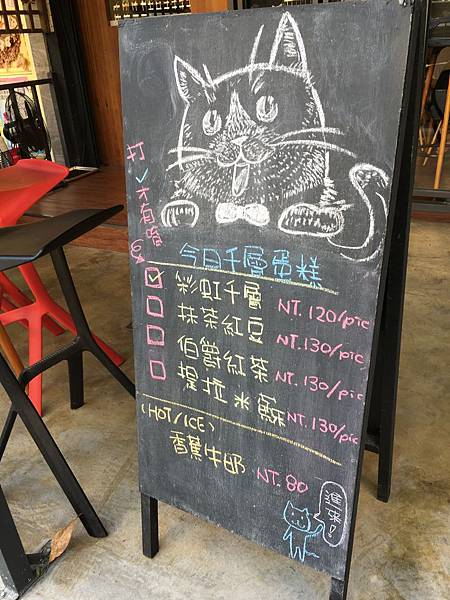 打✓才有唷
今日千層蛋糕
彩虹千層 NT.120/pic
抹茶紅豆 NT.130/pic
伯爵紅茶 NT.130/pic
提拉米蘇 NT.130/pic
(HOT/ICE)
香蕉牛奶 NT.80
進來!